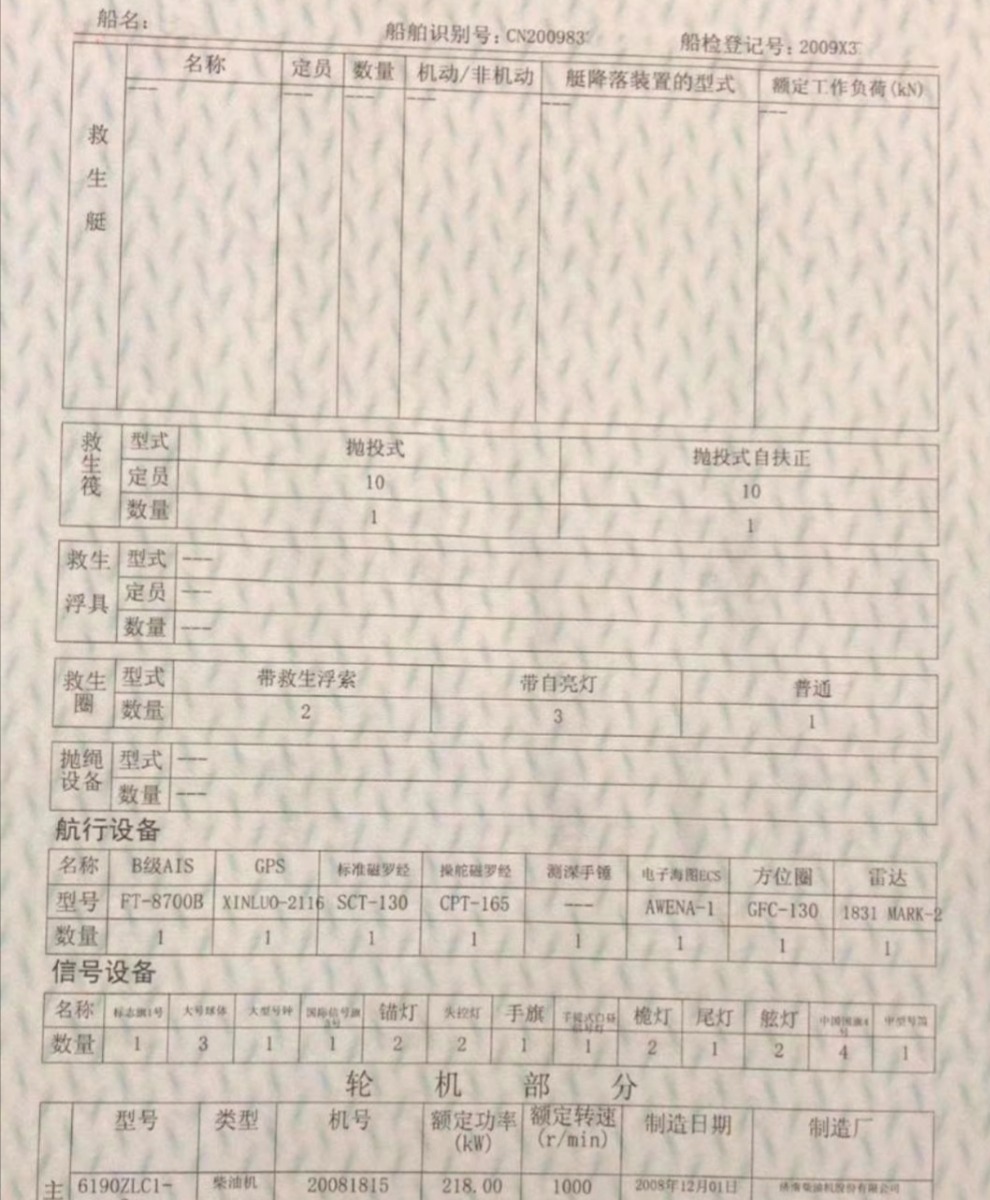 船名： 船舶识别号：CN200983 船检登记号：2009X3
救生艇 名称 定员 数量 机动/非机动 艇降落装置的型式 额定工作负荷(kN)
--- --- --- --- --- ---
救生筏 型式 抛投式 抛投式自扶正
定员 10 10
数量 1 1
救生浮具 型式 ---
定员 ---
数量 ---
救生圈 型式 带救生浮索 带自亮灯 普通
数量 2 3 1
抛绳设备 型式 ---
数量 ---
航行设备
名称 B级AIS GPS 标准磁罗经 操舵磁罗经 测深手锤 电子海图ECS 方位圈 雷达
型号 FT-8700B XINLUO-2116 SCT-130 CPT-165 --- AWENA-1 GFC-130 1831 MARK-2
数量 1 1 1 1 1 1 1 1
信号设备
名称 标志旗1号 大号球体 大型号钟 国际信号旗 锚灯 失控灯 手旗 手提式白昼信号灯 桅灯 尾灯 舷灯 中国国旗4号 中型号笛
数量 1 3 1 1 2 2 1 1 2 1 2 4 1
轮机部分
型号 类型 机号 额定功率(kW) 额定转速(r/min) 制造日期 制造厂
主 6190ZLC1- 柴油机 20081815 218.00 1000 2008年12月01日 济南柴油机股份有限公司